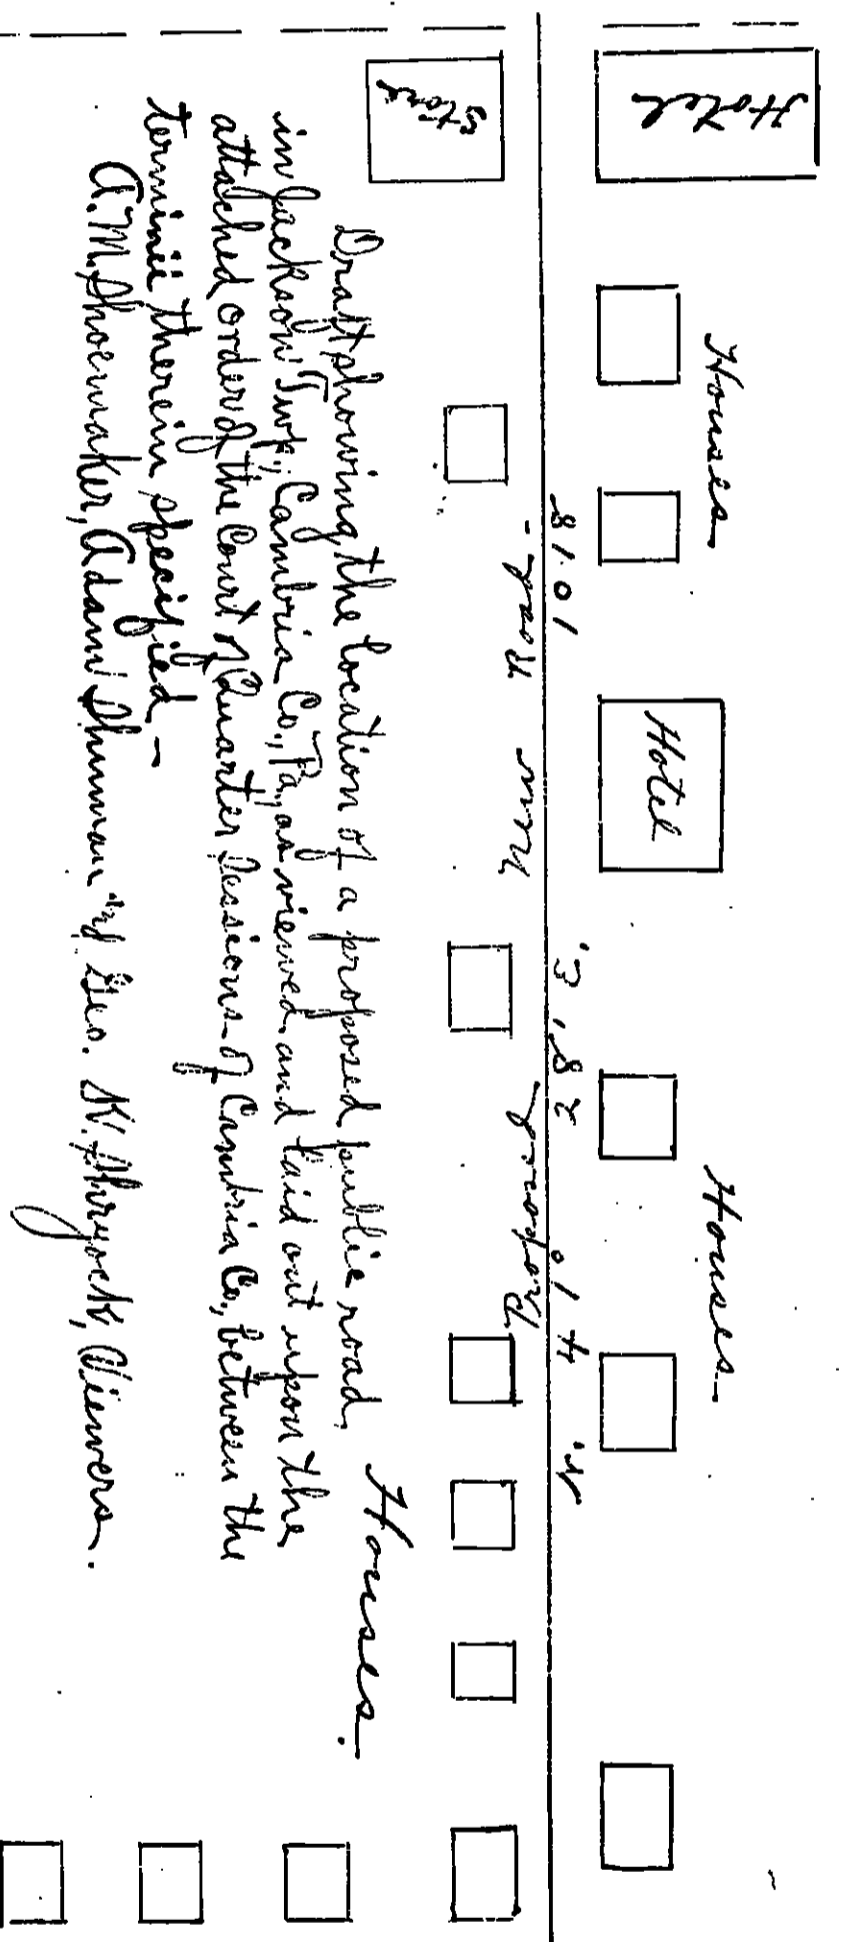 Hotel
Houses
Hotel
Houses
N. 41° 28' E. 1018
Proposed new Road -
Store
Houses.
Draft showing the location of a proposed public road,
in Jackson Twp., Cambria Co., Pa., as viewed and laid out upon the
attached order of the Court of Quarter Sessions of Cambria Co., between the
terminii therein specified –
A. M. Shoemaker, Adam Shuman and Geo. K. Shryock, Viewers.